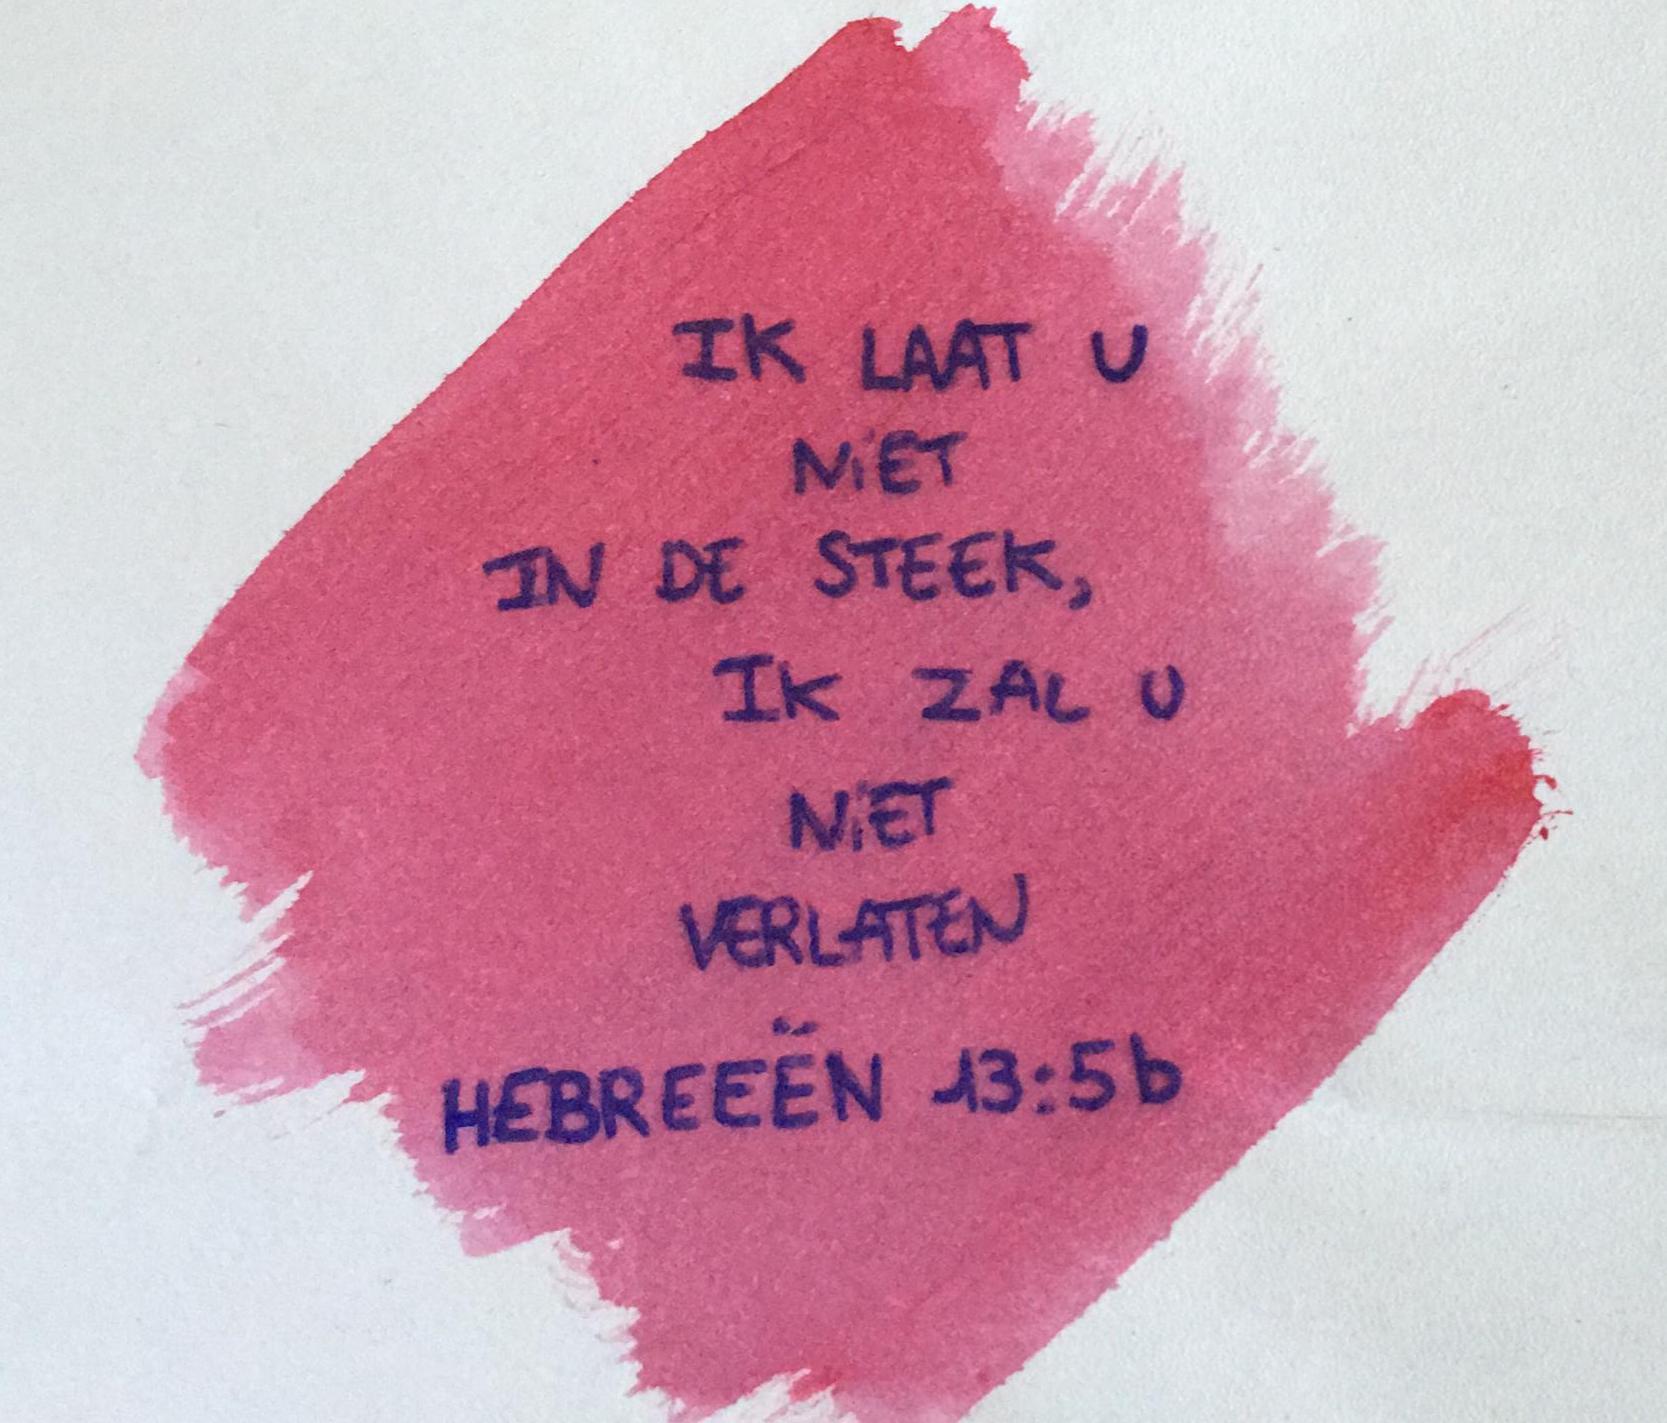 IK LAAT U
NiET
IN DE STEEK,
IK ZAL U
NiET
VERLATEN
HEBREEËN 13:5b